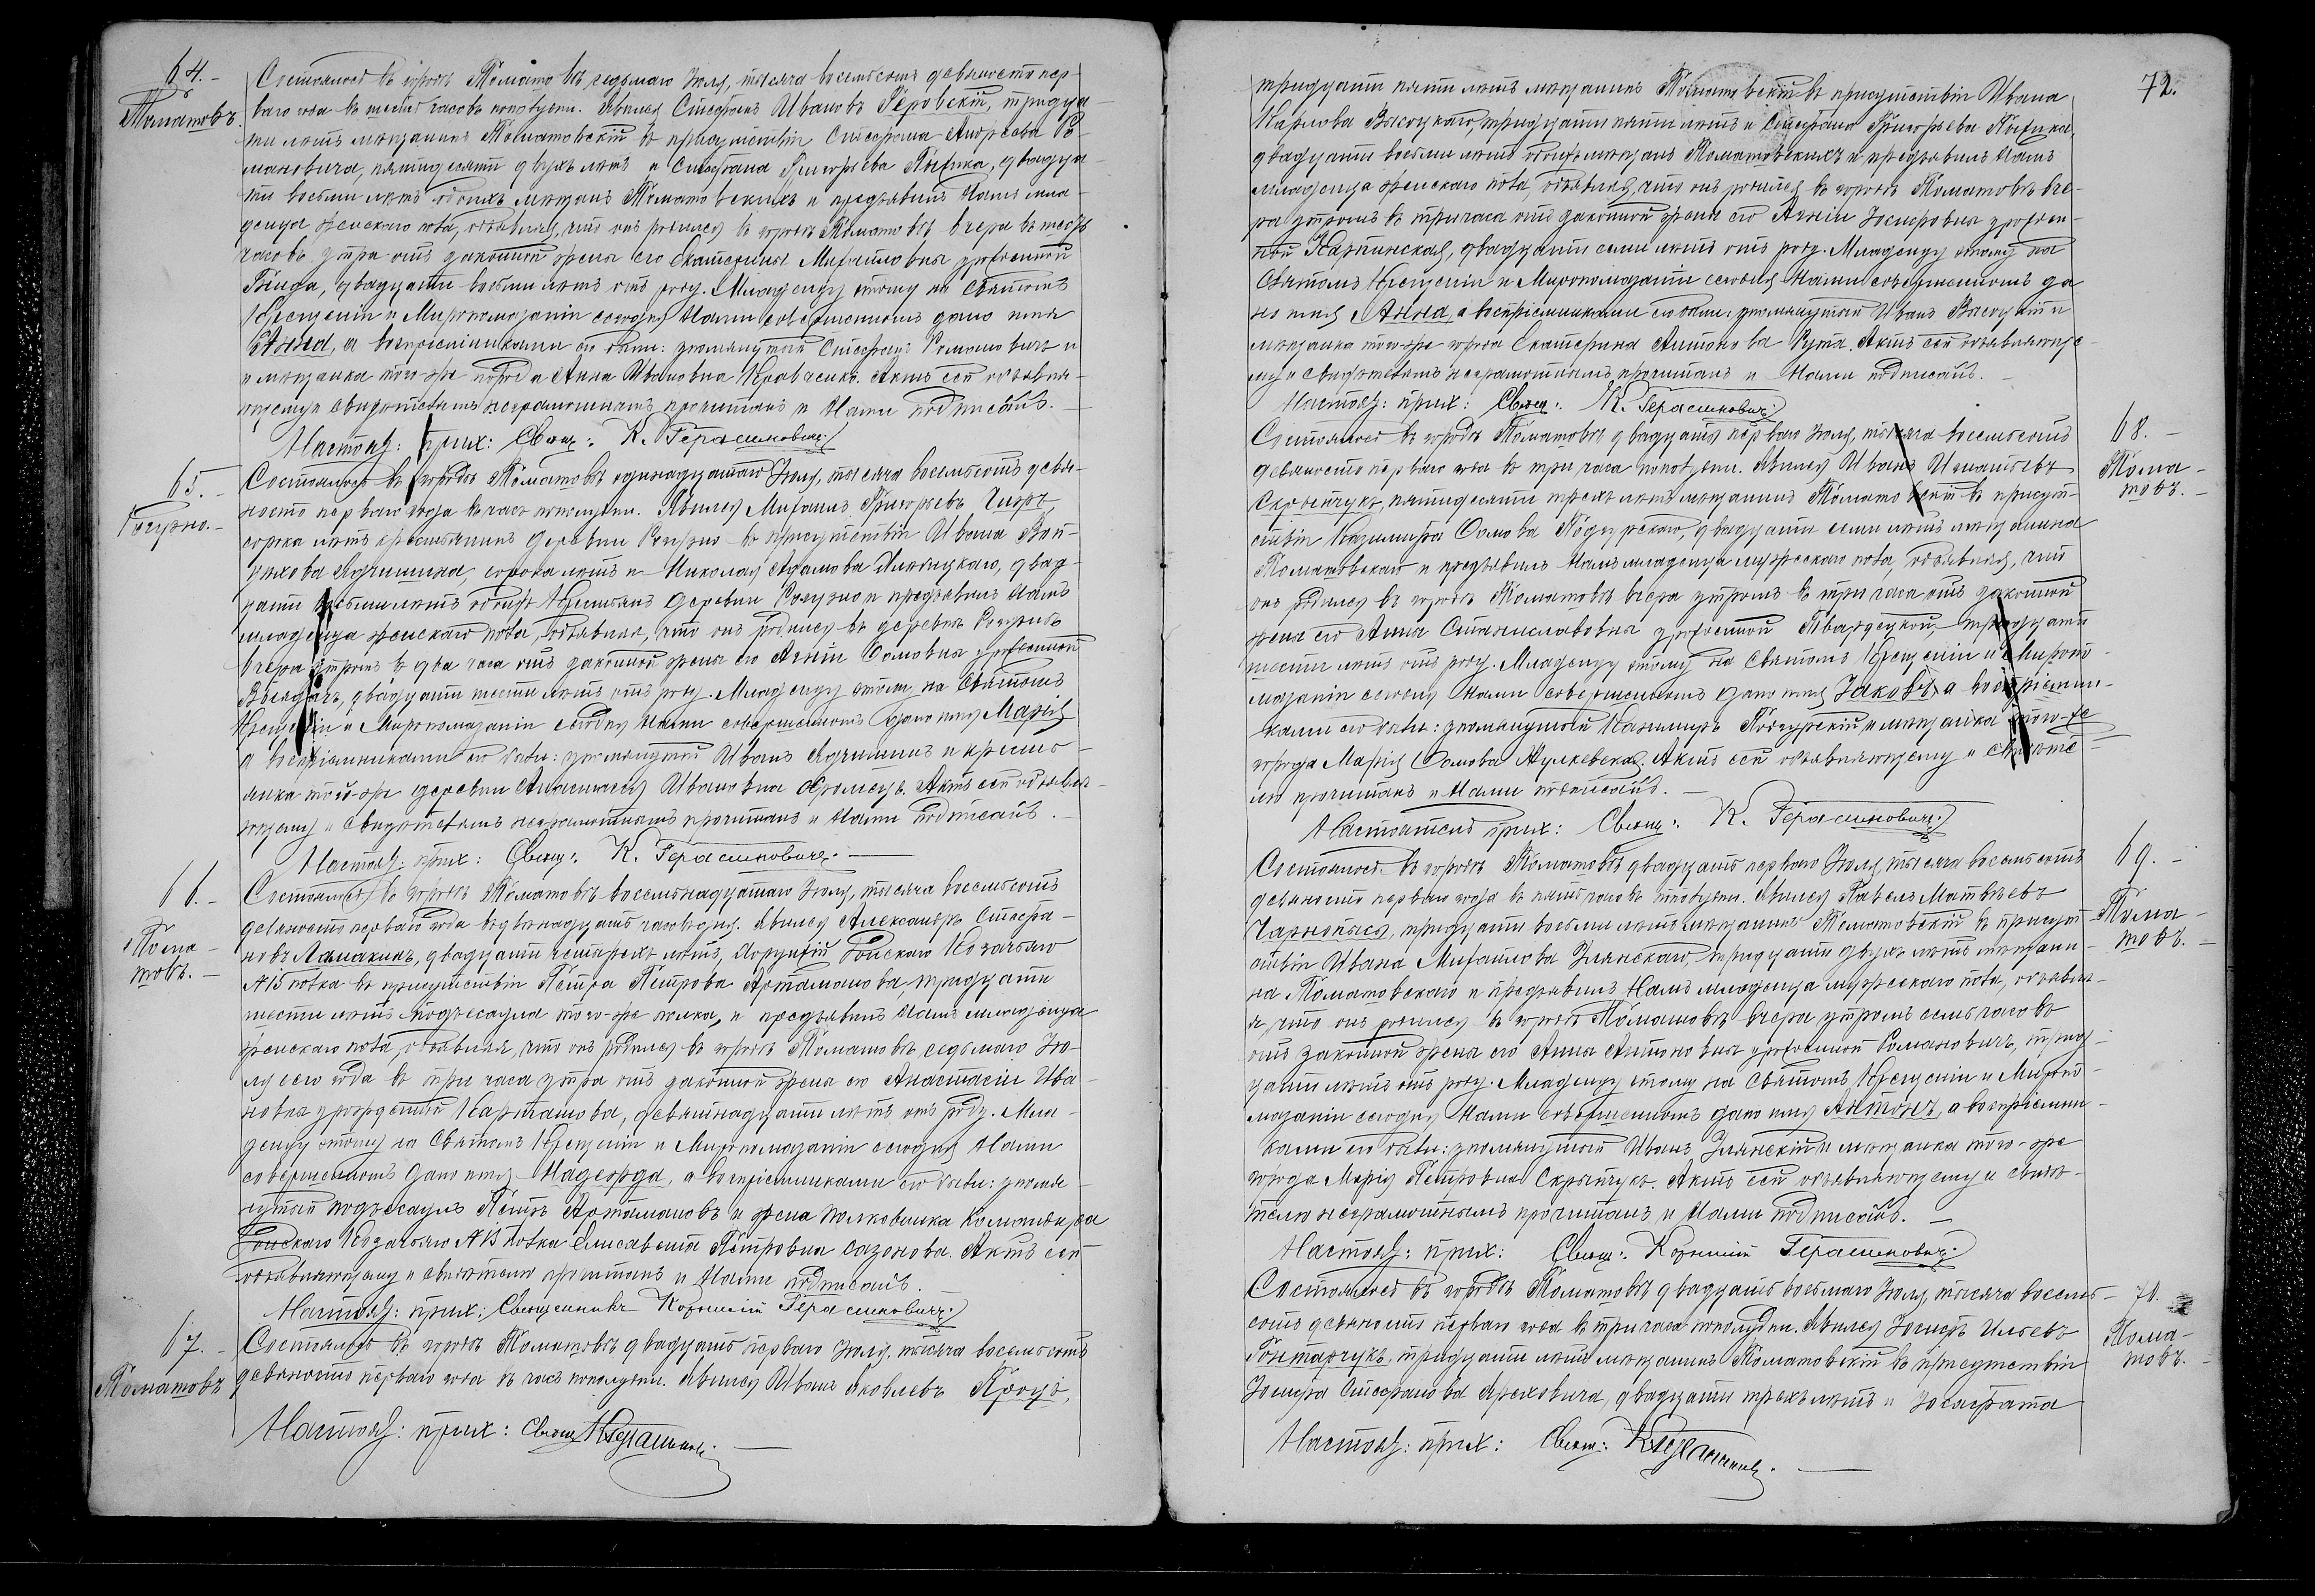 64.-
Томашовъ.
Состоялось въ городѣ Томашовѣ, седьмаго Іюля, тысяча восемьсотъ девяносто пер-
ваго года въ шесть часовъ пополудни. Явился Стефанъ Ивановъ Геровскій, тридца-
ти лѣтъ мѣщанинъ Томашовскій въ присутствіи Стефана Андреева Ро-
мановича, пятидесяти двухъ лѣтъ и Стефана Григорьева Пытка, двадца-
ти восьми лѣтъ обоихъ мѣщанъ Томашовскихъ и предъявилъ Намъ мла-
денца женскаго пола, объявляя, что онъ родился въ городѣ Томашовѣ, вчера въ шесть
часовъ утра отъ законной жены его Екатерины Михайловны урожденной
двадцати восьми лѣтъ отъ роду. Младенцу этому на Святомъ
Крещеніи и Миропомазаніи сегодня Нами совершенномъ дано имя
Анна, а воспріемниками его были: упомянутый Стефанъ Романовичъ и
и мѣщанка того-же города Анна Ивановна Кравченко. Актъ сей объявля-
ющему и свидѣтелямъ неграмотнымъ прочитанъ и Нами подписанъ.-
Настоя: прих: Свящ: К. Герасимовичъ
65.-
Рогузно.-
Состоялось въ городѣ Томашовѣ одинадцатаго Іюля, тысяча восемьсотъ девя-
носто перваго года въ часъ пополудни. Явился Михаилъ Григорьевъ
сорока лѣтъ крестьянинъ деревни Рогузно въ присутствіи Ивана Вой-
сорока лѣтъ и Николая Адамова двад-
цати восьми лѣтъ обоихъ крестьянъ деревни Рогузно и предъявилъ Намъ
младенца женскаго пола, объявляя, что онъ родился въ деревнѣ Рогузнѣ
вчера утромъ въ два часа отъ законной жены его Агніи Сомовны урожденной
двадцати шести лѣтъ отъ роду. Младенцу этому на Святомъ
Крещеніи и Миропомазаніи сегодня Нами совершенномъ дано имя Марія
а воспріемниками его были: упомянутый Иванъ и кресть-
янка той-же деревни Анастасія Ивановна Акть сей объявля-
ющему и свидѣтелямъ неграмотнымъ прочитанъ и Нами подписанъ.-
Настоя: прих: Свящ: К. Герасимовичъ.-
66.-
Тома-
товъ.-
Состоялось въ городѣ Томашовѣ восемьнадцатаго Іюля, тысяча восемьсотъ
девяносто перваго года въ двѣнадцать часовъ дня. Явился Александръ Стефа-
новъ Ламакинъ, двадцати четырехъ лѣтъ, Хорунжій Донскаго Козачьяго
№15 полка въ присутствіи Петра Петрова Артамонова, тридцати
шести лѣтъ подъесаула того-же полка, и предъявилъ Намъ младенца
женскаго пола, объявляя, что онъ родился въ городѣ Томашовѣ, седьмаго Ію-
ля сего года въ три часа утра отъ законной жены его Анастасіи Ива-
новны урожденной Карташова, девятнадцати лѣтъ отъ роду. Мла-
денцу этому на Святомъ Крещеніи и Миропомазаніи сегодня Нами
совершенномъ дано имя Надежда, а воспріемниками его были: упомя-
нутый подъесаулъ Петръ Артамоновъ и жена полковника Командира
Донскаго Козачьяго №15 полка Елисавета Петровна Сазонова. Актъ сей
объявляющему и свидѣтелю прочитанъ и Нами подписанъ.
Настоя: прих: Священникъ Корнилій Герасимовичъ
67.-
Томашовъ
Состоялось въ городѣ Томашовѣ двадцать перваго Іюля, тысяча восемьсотъ
девяносто перваго года въ часъ пополудни. Явился Иванъ Яковлевъ Процъ,
Настоя: прих: Свящ КГерасимов.-
72.
тридцати пяти лѣтъ мѣщанинъ Томашовскій въ присутствіи Ивана
Карлова Высоцкаго, тридцати пяти лѣтъ и Стефана Григорьева Пытка,
двадцати восьми лѣтъ обоихъ мѣщанъ Томашовскихъ и предъявилъ Намъ
младенца женскаго пола, объявляя, что онъ родился въ городѣ Томашовѣ вче-
ра утромъ въ три часа отъ законной жены его Агніи Іосифовны урожден-
ной Карпинская, двадцати семи лѣтъ отъ роду. Младенцу этому на
Святомъ Крещеніи и Миропомазаніи сегодня Нами совершенномъ да
но имя Анна, а воспріемниками его были: упомянутый Иванъ Высоцкій и
мѣщанка того-же города Екатерина Антонова Рута. Актъ сей объявляюще-
му и свидѣтелямъ неграмотнымъ прочитанъ и Нами подписанъ.-
Настоя: прих: Свящ: К. Герасимовичъ
68.-
Тома-
товъ.-
Состоялось въ городѣ Томашовѣ двадцать перваго Іюля, тысяча восемьсотъ
девяносто перваго года въ три часа пополудни. Явился Иванъ Игнатьевъ
пятидесяти трехъ лѣтъ мѣщанинъ Томашовскій въ присут-
ствіи Казимира Сомова двадцати семи лѣтъ мѣщанина
Томашовскаго и предъявилъ Намъ младенца мужескаго пола, объявляя, что
онъ родился въ городѣ Томашовѣ вчера утромъ въ три часа отъ законной
жены его Анны Станиславовны урожденной Твардецкой, тридцати
шести лѣтъ отъ роду. Младенцу этому на Святомъ Крещеніи и Миропо-
мазаніи сегодня Нами совершенномъ дано имя Іаковъ, а воспріемни-
ками его были: упомянутый Казимиръ и мѣщанка того-же
города Марія Сомова Акть сей объявляющему и свидѣте-
лю прочитанъ и Нами подписанъ.-
Настоятель прих: Свящ: К. Герасимовичъ
69.-
Тома-
товъ.-
Состоялось въ городѣ Томашовѣ двадцать перваго Іюля, тысяча восемьсотъ
девяносто перваго года въ пять часовъ пополудни. Явился Павелъ Матвѣевъ
Чарнопысъ, тридцати восьми лѣтъ мѣщанинъ Томашовскій въ присут-
ствіи Ивана Михайлова тридцати двухъ лѣтъ мѣщани-
на Томашовскаго и предъявилъ Намъ младенца мужескаго пола, объявля-
я, что онъ родился въ городѣ Томашовѣ вчера утромъ семь часовъ
отъ законной жены его Анны Антоновны урожденной Романовичъ, трид-
цати лѣтъ отъ роду. Младенцу этому на Святомъ Крещеніи и Миропо-
мазаніи сегодня Нами совершенномъ дано имя Антонъ, а воспріемни-
ками его были: упомянутый Иванъ и мѣщанка того-же
города Марія Петровна Скрыпчукъ. Актъ сей объявляющему и свидѣ-
телю неграмотнымъ прочитанъ и Нами подписанъ.-
Настоя: прих: Свящ: Корнилій Герасимовичъ
70.
Тома-
товъ.-
Состоялось въ городѣ Томашовѣ двадцать восьмаго Іюля, тысяча восемь-
сотъ девяносто перваго года въ три часа пополудни. Явился Іосифъ Ильевъ
Гонтарчукъ, тридцати лѣтъ мѣщанинъ Томашовскій въ присутствіи
Іосифа Стефанова двадцати трехъ лѣтъ и Іосафата
Настоя: прих: Свящ: КГерасимов.-